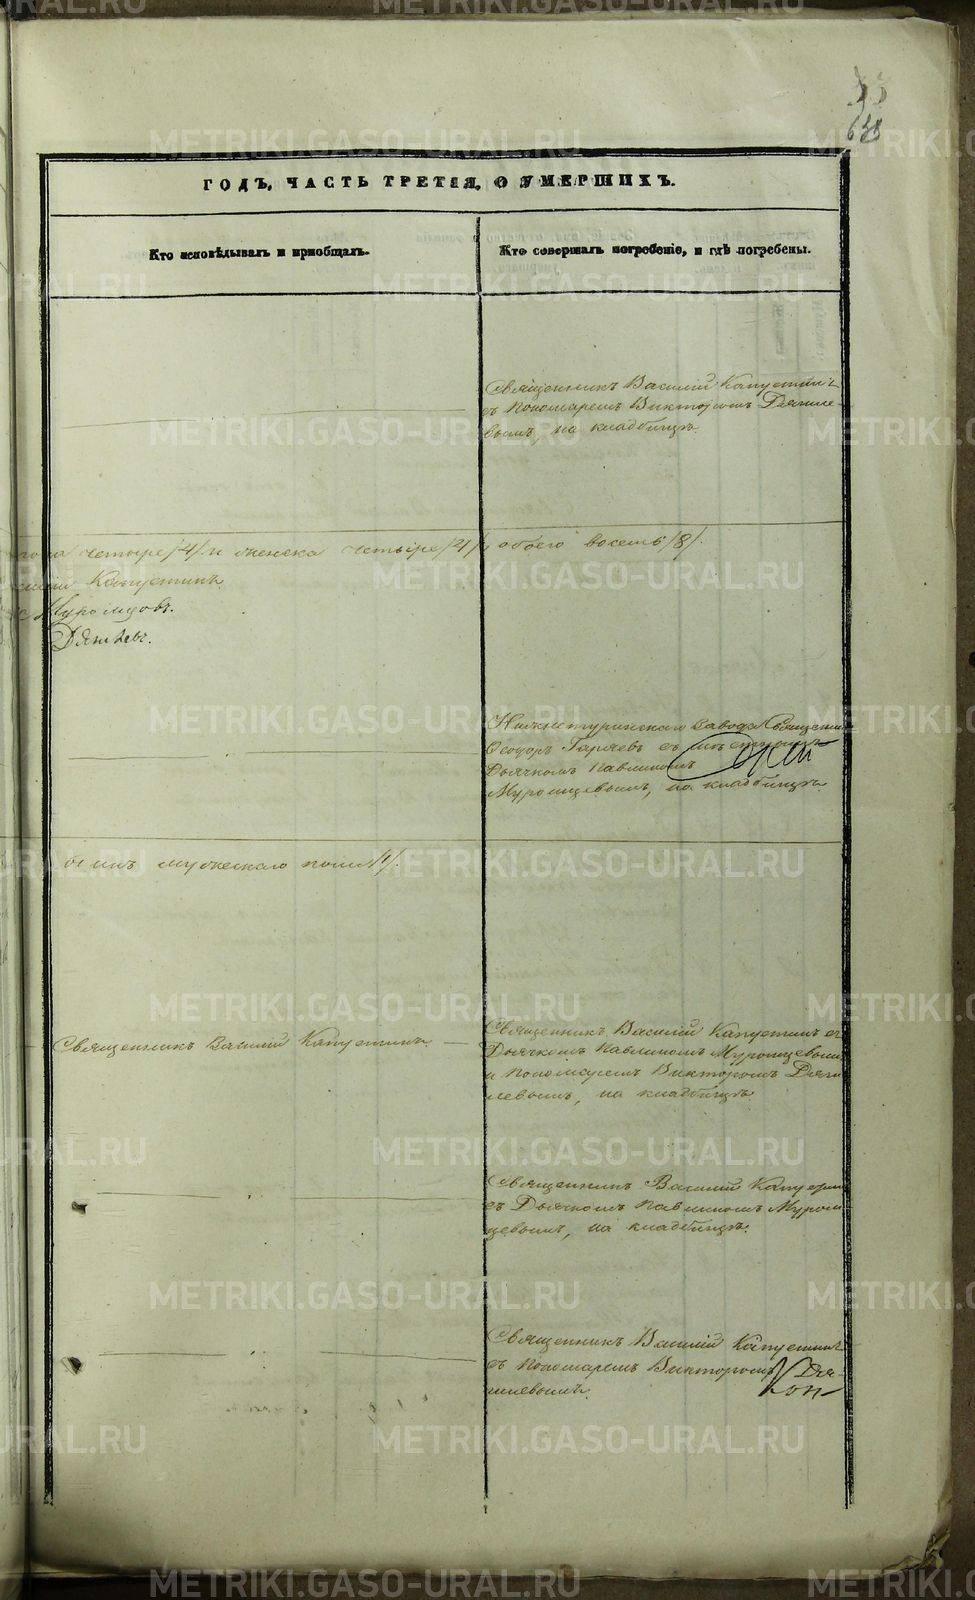 638
ГОДЪ, ЧАСТЬ ТРЕТІЯ, О УМЕРШИХЪ.
Кто исповѣдывалъ и пріобщалъ.
Кто совершалъ погребеніе, и гдѣ погребены.
Священникъ Василій Капустинъ
съ Пономаремъ Викторомъ Дягиле-
вымъ, на кладбищѣ.
пола четыре /4/ и женска четыре /4/, обоего восемь /8/.
Капустинъ
Муромцовъ.
Дягилевъ.
Нижнетуринскаго завода Священникъ
Ѳеодоръ Гаряевъ съ мѣстнымъ
Дьячкомъ Павлиномъ
Муромцевымъ, на кладбищѣ
мужескаго пола /1/.
Священникъ Василій Капустинъ
Священникъ Василій Капустинъ съ
Дьячкомъ Павлиномъ Муромцевымъ
и Пономаремъ Викторомъ Дяги-
левымъ, на кладбищѣ
Священникъ Василій Капустин
съ Дьячкомъ Павлиномъ Муром
цевымъ, на кладбищѣ.
Священникъ Василій Капустинъ
съ Пономаремъ Викторомъ Дяги-
левымъ.
METRIKI.GASO-URAL.RU